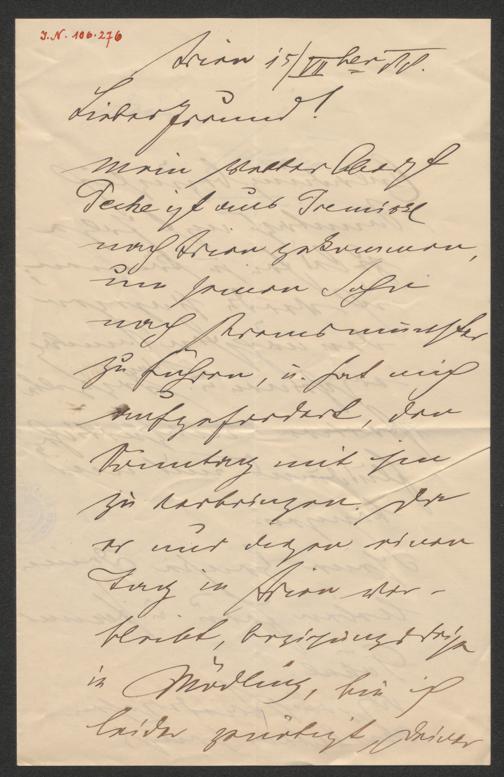 I.N. 106.276
Wien 15/VII ber 88.
Lieber Freund!
mein Vetter Oberst
Teche ist aus Premissl
nach Wien gekommen,
um seinen Sohn
nach Kremsmünster
zu führen, u. hat mich
aufgefordert, den
Sonntag mit ihm
zu verbringen. Da
er nur diesen einen
Tag in Wien ver-
bleibt, beziehungsweise
in Mödling, bin ich
leider genötigt, deiner